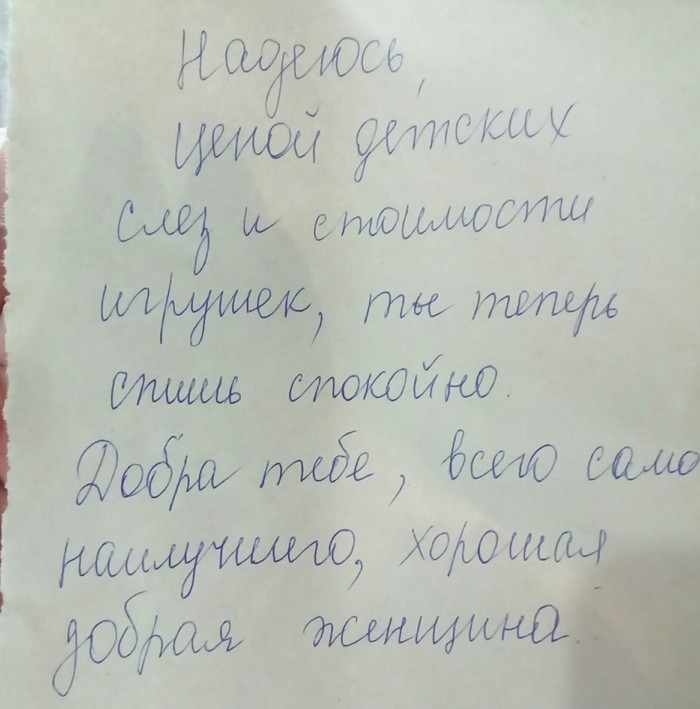 Надеюсь,
ценой детских
слез и стоимости
игрушек, ты теперь
спишь спокойно.
Добра тебе, всего само
наилучшего, хорошая
добрая женщина.